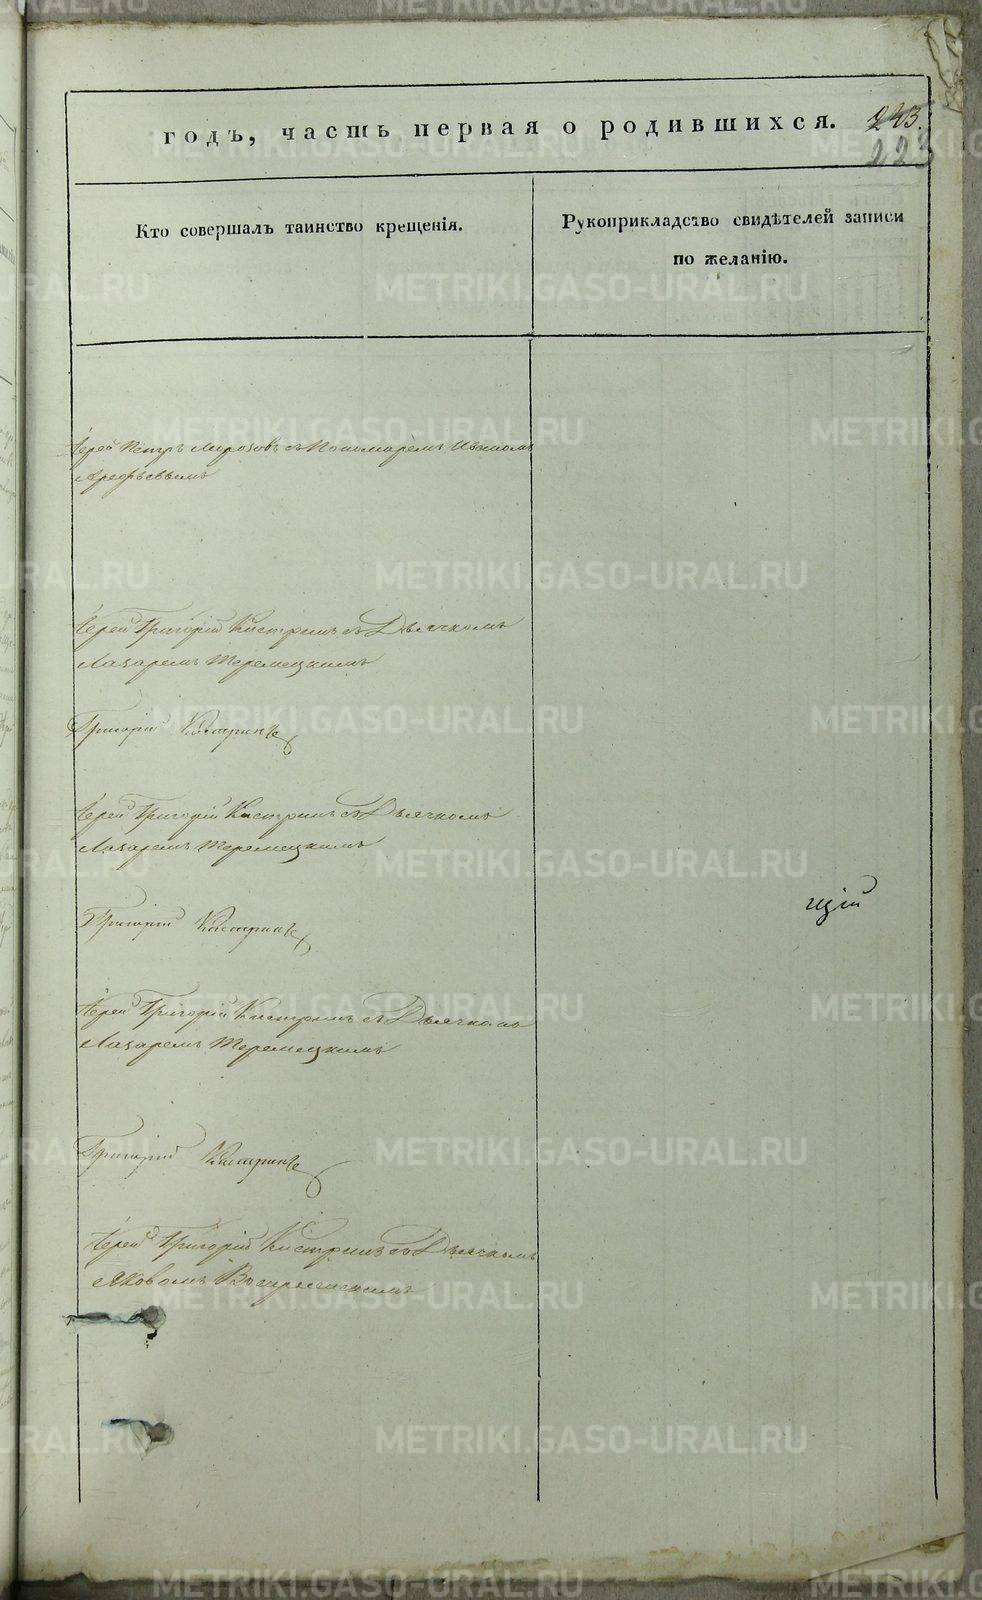 годъ, часть первая о родившихся.
243.
223
Кто совершалъ таинство крещенія.
Рукоприкладство свидѣтелей записи
по желанію.
Іерей Петръ Морозовъ съ Пономаремъ Иваномъ
Арефьевымъ
Іерей Григорій Кистринъ съ Дьячкомъ
Лазаремъ Теремецкимъ
Григорій Кистринъ
Іерей Григорій Кистринъ съ Дьячкомъ
Лазаремъ Теремецкимъ
щій
Григорій Кистринъ
Іерей Григорій Кистринъ съ Дьячкомъ
Лазаремъ Теремецкимъ
Григорій Кистринъ
Іерей Григорій Кистринъ съ Дьячкомъ
Яковомъ Воскресенскимъ
METRIKI.GASO-URAL.RU